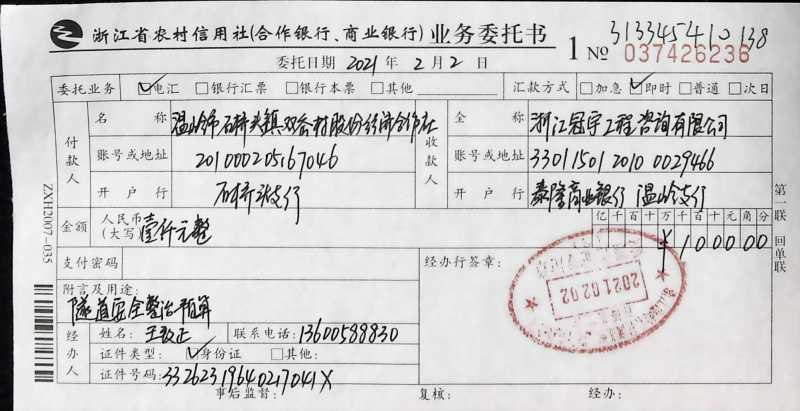 浙江省农村信用社(合作银行、商业银行)业务委托书
1 № 037426236
313345410138
委托日期 2021 年 2 月 2 日
委托业务 ☑电汇 □银行汇票 □银行本票 □其他 汇款方式 □加急 ☑即时 □普通 □次日
付款人 名称 温岭市石桥头镇双岙村股份经济合作社
账号或地址 201000205167046
开户行 石桥头支行
收款人 全称 浙江冠宇工程咨询有限公司
账号或地址 3301150120100029466
开户行 泰隆商业银行 温岭支行
金额 人民币(大写) 壹仟元整
亿千百十万千百十元角分
¥100000
支付密码
经办行签章:
2021.02.02
附言及用途:
隧道安全整治预算
经办人 姓名: 王致正 联系电话: 13600588830
证件类型: ☑身份证 □其他:
证件号码: 33262319640217041X
事后监督: 复核: 经办:
第一联 回单联
ZXH2007-035